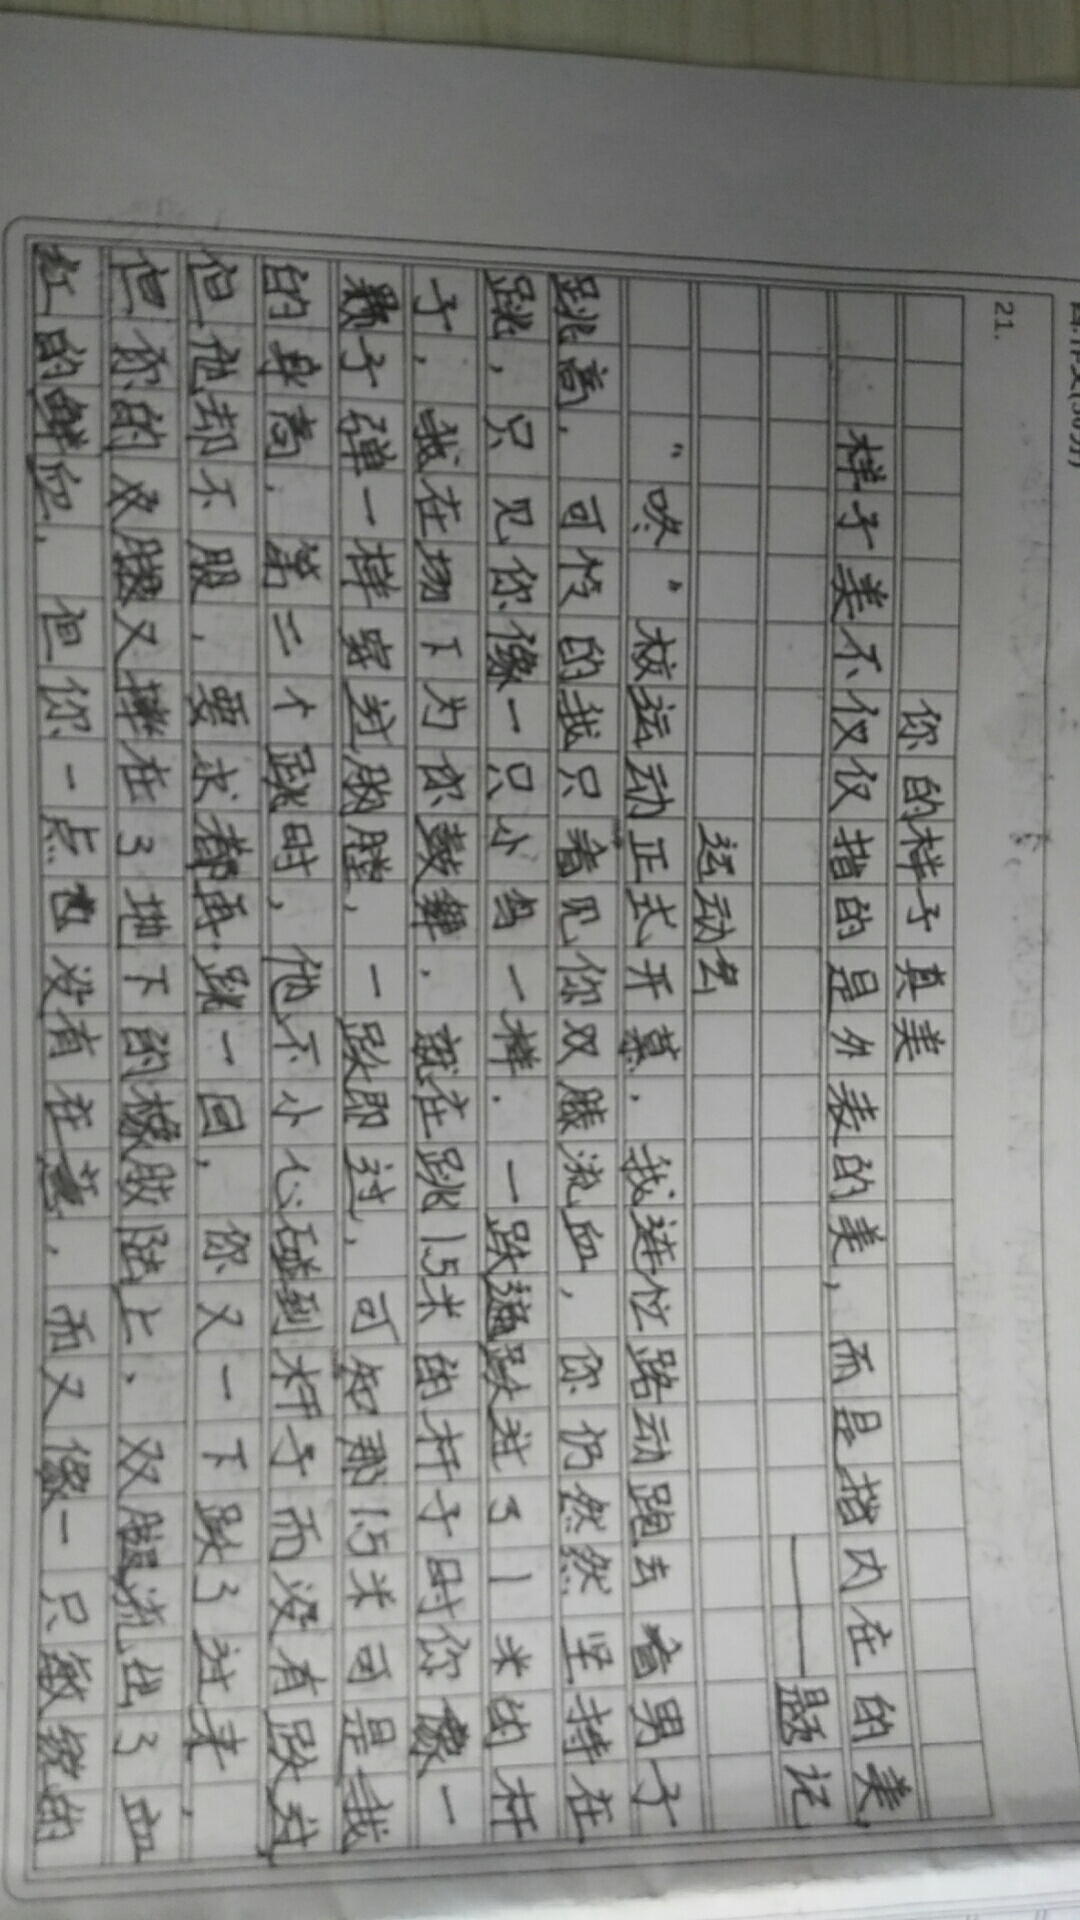 21.
你的样子真美
样子美不仅仅指的是外表的美，而是指内在的美，
——题记
运动会
“咚”校运动正式开幕．我连忙路动跑去看男子
跳高．可怜的我只看见你双膝流血，你仍然然坚持在
跳，只见你像一只小鸟一样．一跃通跃过了1米的杆
子，我在场下为你鼓舞．就在跳1.5米的杆子时你像一
颗子弹一样穿过胸膛，一跃即过，可知那1.5米可是我
的身高．第二个跳时，他不小心碰到杆子而没有跃过
但他却不服，要求都再跳一回，你又一下跃了过来，
但你的双腿又摔在了地下的橡胶陆上．双腿流出了血
红的鲜血．但你一点也没有在意，而又像一只敏锐的